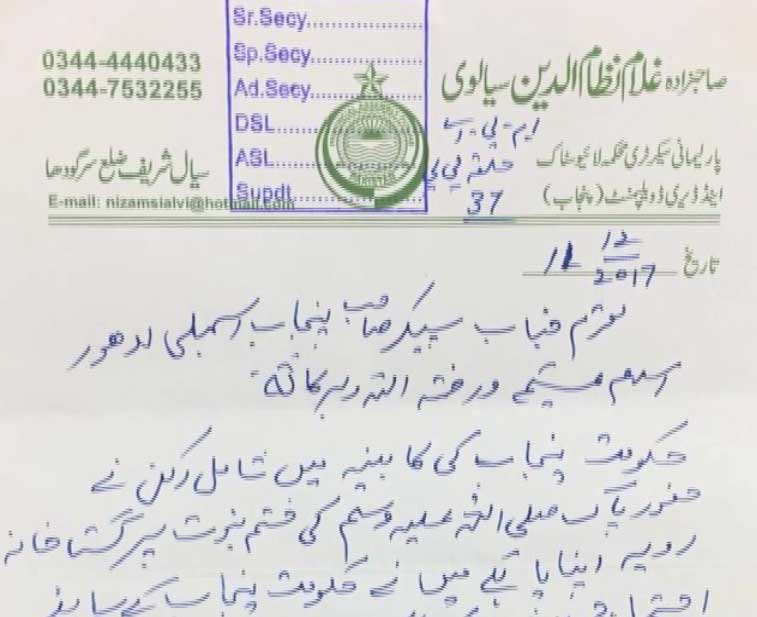 Sr.Secy..................
Sp.Secy..................
Ad.Secy..................
DSL..................
ASL..................
Supdt..................
0344-4440433
0344-7532255
صاحبزادہ غلام نظام الدین سیالوی
ایم-پی-اے
حلقہ پی پی
37
پارلیمانی سیکرٹری محکمہ لائیوسٹاک
اینڈ ڈیری ڈویلپمنٹ (پنجاب)
سیال شریف ضلع سرگودھا
E-mail: nizamsialvi@hotmail.com
تاریخ 11 12 2017
محترم جناب سپیکر صاحب پنجاب اسمبلی لاہور
اسلام علیکم ورحمتہ اللہ وبرکاتہ
حکومت پنجاب کی کابینہ میں شامل رکن نے
حضور پاک صلی اللہ علیہ وسلم کی ختم نبوت پر گستاخانہ
رویہ اپنایا میں نے حکومت پنجاب کے ساتھ